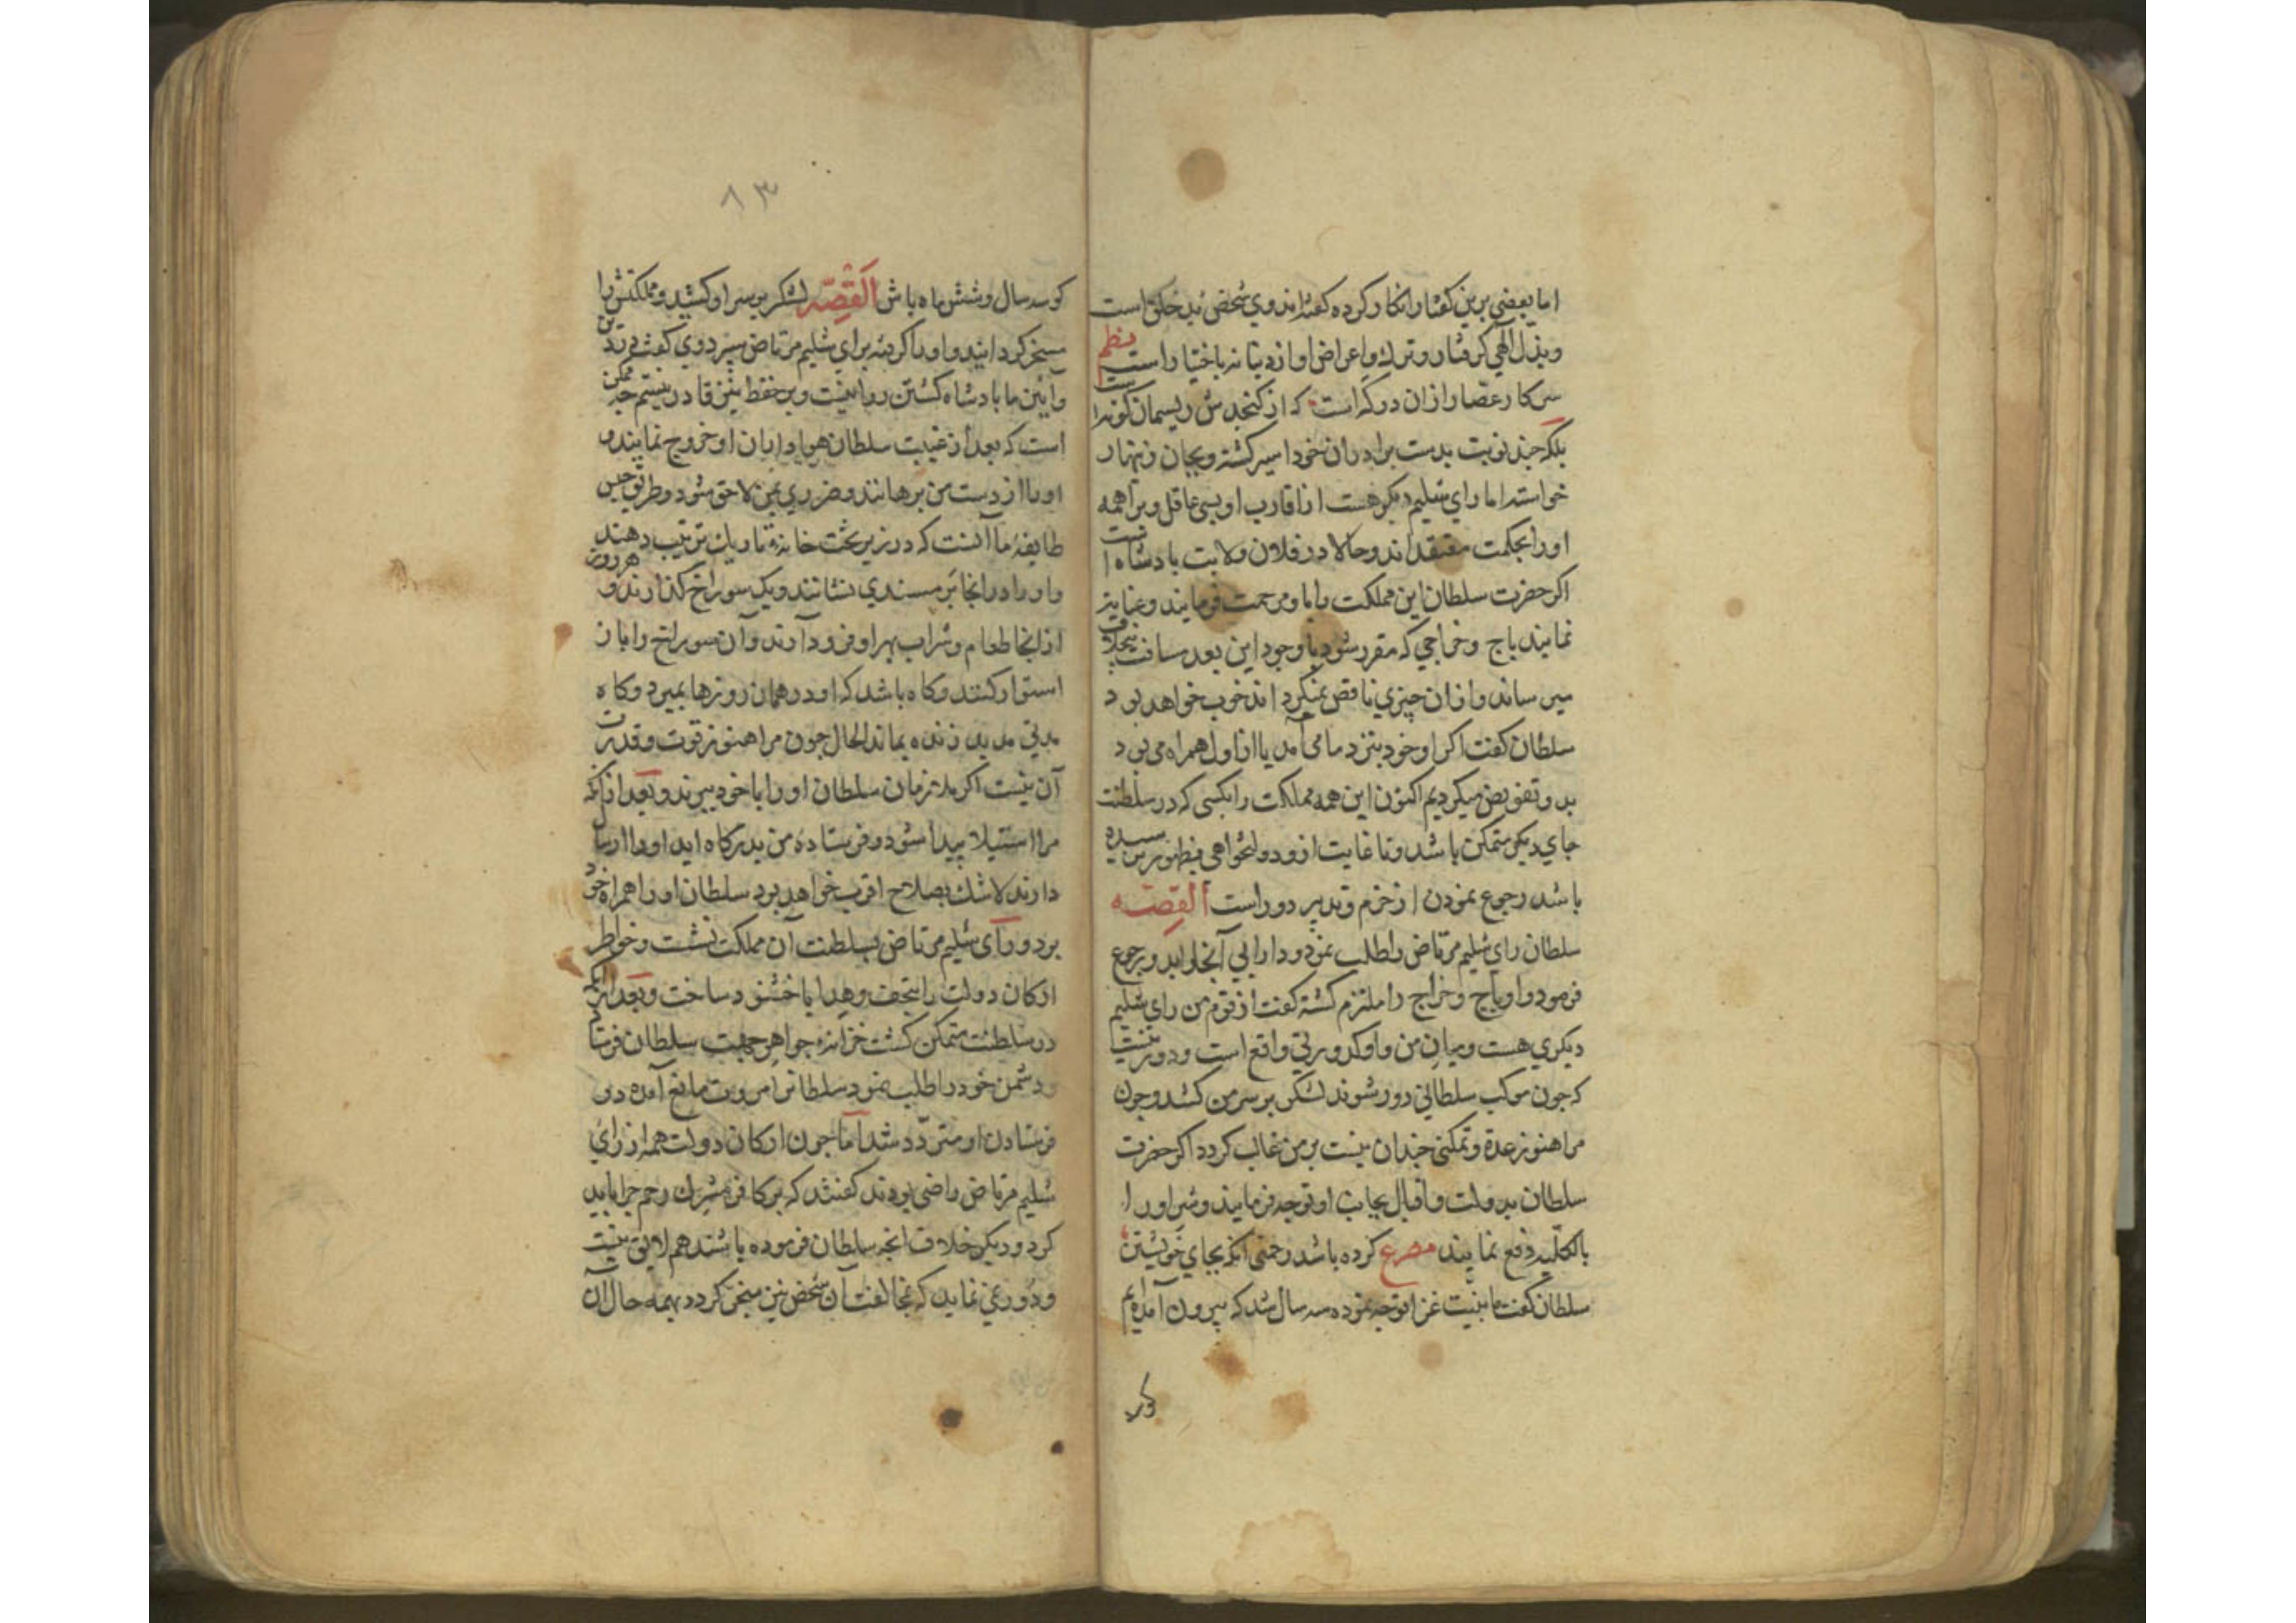 اما بعضي برين گفتار انكار كرده گفته‌اند وي شخصي بد خلق است
وبذل الهي گرفتار وترك واعراض او از دنيا نه باختيار است نظم
كار عصار ازان درگه است كه از كنجدش ريسمان كوته است
بلكه چند نوبت بدست برادران خود اسير گشته وبجان زنهار
خواسته اما راي شليم ديگر هست از اقارب او بسي عاقل وبراهمه
اورا بحكمت معتقداند وحالا در فلان ولايت پادشاه است
اگر حضرت سلطان اين مملكت را باو مرحمت فرمايند وعنايت
نمايند باج وخراجي كه مقرر شود با وجود اين بعد مسافت بمحل
ميرساند وازان چيزي ناقص نميگرداند خوب خواهد بود
سلطان گفت اگر او خود بنزد ما مي‌آمد يا از اول همراه مي‌بود
بدو تفويض ميكرديم اكنون اين همه مملكت را بكسي كه در سلطنت
جاي ديگر متمكن باشد وتا غايت ازو دولتخواهي بظهور نرسيده
باشد رجوع نمودن از حزم وتدبير دور است القصه
سلطان راي شليم مرتاض را طلب نمود ودارايي آنجا بدو رجوع
فرمود واو باج وخراج را ملتزم گشته گفت از قوم من راي شليم
ديگري هست وميان من واو كدورتي واقع است ودور نيست
كه چون موكب سلطاني دور شوند لشكر بر سر من كشد وچون
مرا هنوز عدة وتمكني چندان نيست بر من غالب گردد اگر حضرت
سلطان بدولت واقبال بجانب او توجه فرمايند وشر اورا
بالكليه دفع نمايند مصرع كرده باشد رحمتي انگه بجاي خويشتن
سلطان گفت ما بنيت غزا توجه نموده سه سال شد كه بيرون آمده‌ايم
گو سه سال وشش ماه باش القصه لشكر بر سر او كشيد ومملكتش را
مسخر گردانيد واورا گرفته براي شليم مرتاض سپرد وي گفت در دين
وآيين ما پادشاه كشتن روا نيست وبر حفظ نيز قادر نيستم چه ممكن
است كه بعد از غيبت سلطان هواداران او خروج نمايند و
اورا از دست من برهانند وضرري بمن لاحق شود وطريق حبس
طايفه ما آنست كه در زير تخت خانه تاريك ترتيب دهند
واورا در انجا بر مسندي نشانند ويك سوراخ گذارند و هر روز
از انجا طعام وشراب بهر او فرود آرند وآن سوراخ را باز
استوار كنند وگاه باشد كه او در همان روزها بميرد وگاه
مدتي مديد زنده بماند الحال چون مرا هنوز قوت وقدرت
آن نيست اگر ملازمان سلطان اورا با خود ببرند وبعد از انكه
مرا استيلا پيدا شود وفرستاده من بدرگاه ايد اورا ارسال
دارند لاشك بصلاح اقرب خواهد بود سلطان اورا همراه خود
برد وراي شليم مرتاض بسلطنت آن مملكت نشست وخواطر
اركان دولت را بتحف وهدايا خشنود ساخت وبعد از آنكه
در سلطنت متمكن گشت خزانه جواهر جهت سلطان فرستاد
ودشمن خود را طلب نمود سلطانرا مروت مانع آمده در
فرستادن او متردد شد اما چون اركان دولت همه از راي
شليم مرتاض راضي بودند گفتند كه بر كافر مشرك رحم چرا بايد
كرد وديگر خلاف انچه سلطان فرموده باشند هم لايق نيست
ودور نمي‌نمايد كه بمخالفت آن شخص نيز منجر گردد بهمه حال آن
۸۳